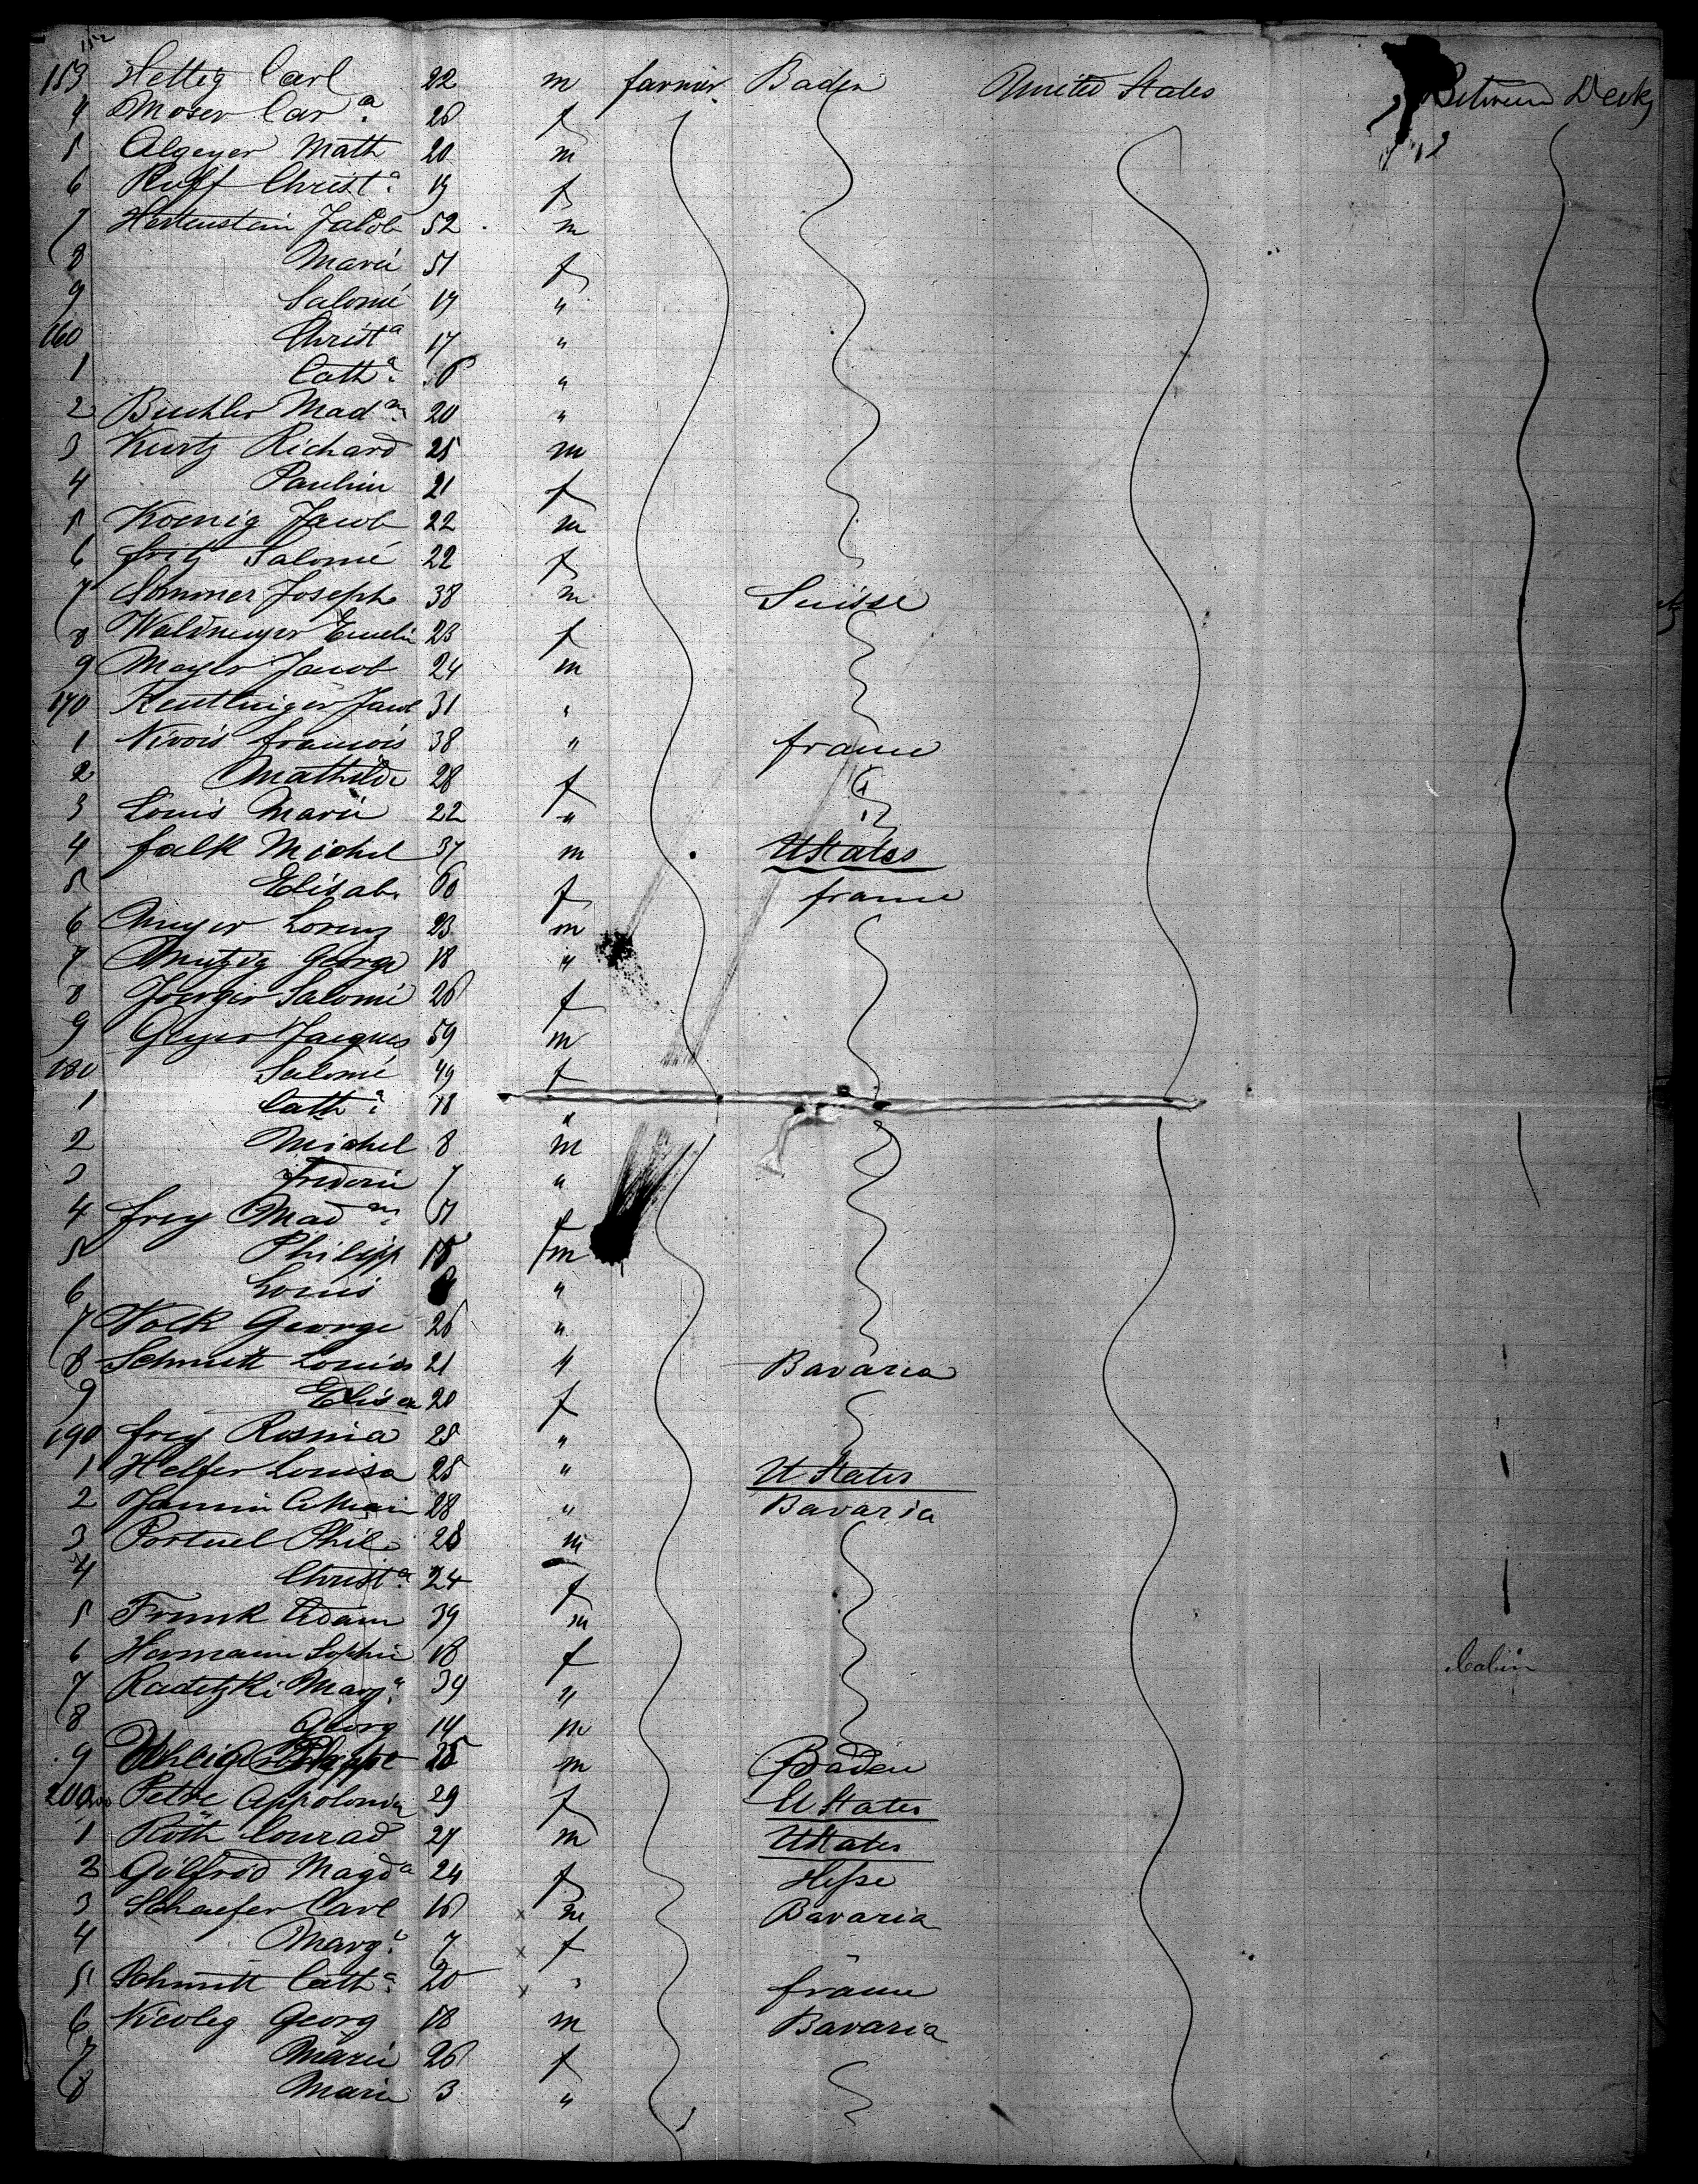 152
153 Hettig Carl 22 m farmer Baden United States Between Decks
4 Moser Car.a 28 f
5 Algeyer Math 20 m
6 Ruff Christ.a 19 f
7 Hertenstein Jacob 52 m
8 Marie 51 f
9 Salomé 19 "
160 Christa 17 "
1 Cath.a "
2 Buchler Madn 20 "
3 Kurtz Richard 25 m
4 Paulin 21 f
5 Koenig Jacob 22 m
6 fritz Salomé 22 f
7 Sommer Joseph 38 m Suisse
8 Waldmeyer Emelin 23 f
9 Mayer Jacob 24 m
170 Reutlinger Jacob 31 "
1 Nivois francois 38 " france
2 Mathilde 28 f
3 Louis Marie 22 "
4 falk Michel 37 m UStates
5 Elisab. 60 f france
6 Meyer Lorenz 23 m
7 Mutzig George 18 "
8 Joerger Salomé 26 f
9 Geyer Jacques 59 m
180 Salomé 49 f
1 Cath.a 18 "
2 Michel 8 m
3 frederic 7 "
4 frey Madn. 51 f
5 Philipp 15 m
6 Louis "
7 Volk George 26 "
8 Schmitt Louis 21 " Bavaria
9 Elisa 20 f
190 frey Rosina 25 "
1 Helfer Louisa 25 " U States
2 28 " Bavaria
3 Portuel Phil. 28 m
4 Christ.a 24 f
5 Frank Adam 39 m
6 Hermann Sophie 18 f Cabin
7 Radetzki Marg.a 39 "
8 Georg 14 m
9 m Baden
200 Petri Appolonia 29 f U States
1 Roth Conrad 27 m UStates
2 Gölfrod Magda 24 f Hesse
3 Schaefer Carl 16 x m Bavaria
4 Marg.a 7 x f
5 Schmitt Cath.a 20 x " france
6 Nicoley Georg 18 m Bavaria
7 Marie 26 f
8 Marie 3 "